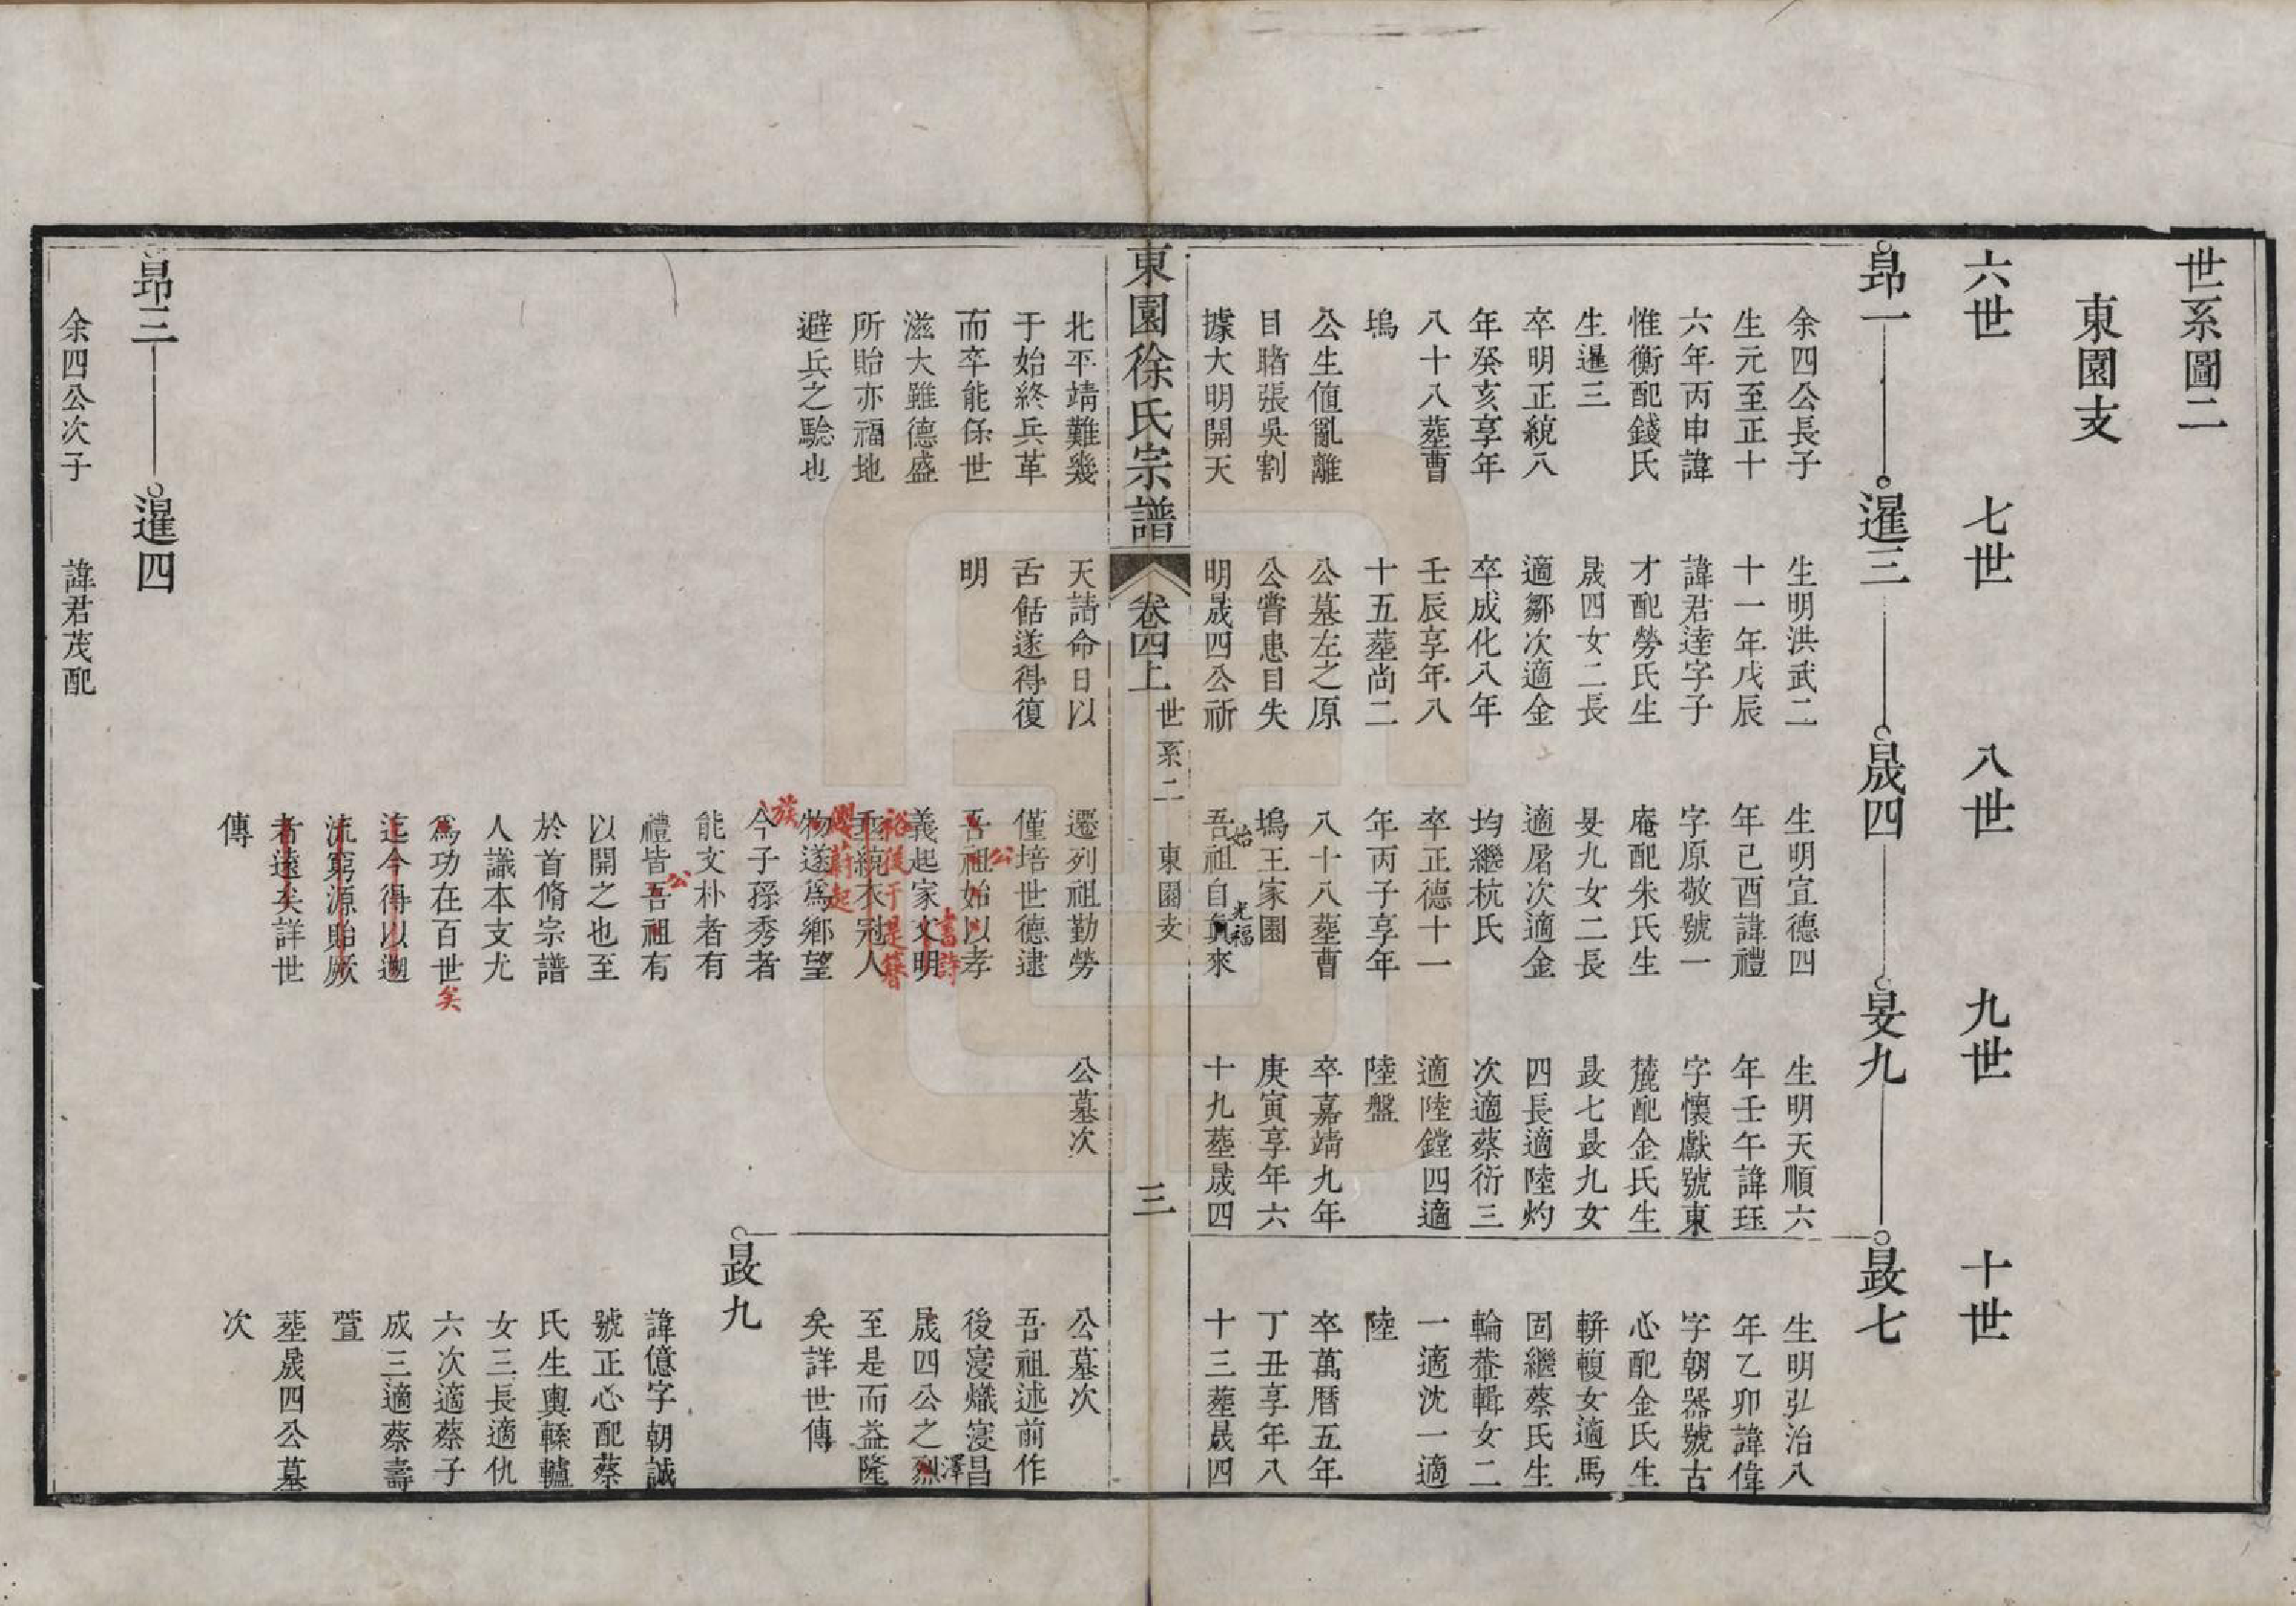 世系圖二
東園支
六世
七世
八世
九世
十世
昻一
暹三
晟四
旻九
晸七
余四公長子
生元至正十
六年丙申諱
惟衡配錢氏
生暹三
卒明正統八
年癸亥享年
八十八葬曹
塢
公生値亂離
目睹張吳割
據大明開天
北平靖難幾
于始終兵革
而卒能保世
滋大雖德盛
所貽亦福地
避兵之驗也
生明洪武二
十一年戊辰
諱君達字子
才配勞氏生
晟四女二長
適鄒次適金
卒成化八年
壬辰享年八
十五葬尚二
公墓左之原
公嘗患目失
明晟四公祈
天請命日以
舌餂遂得復
明
生明宣德四
年己酉諱禮
字原敬號一
庵配朱氏生
旻九女二長
適屠次適金
均繼杭氏
卒正德十一
年丙子享年
八十八葬曹
塢王家園
吾祖自眞來
始
光福
遷列祖勤勞
僅培世德逮
吾祖始以孝
公
義起家文明
書詩
垂統衣冠人
裕後于是簪
物遂爲鄉望
纓蔚起
今子孫秀者
族
能文朴者有
禮皆吾祖有
公
以開之也至
於首脩宗譜
人識本支尤
爲功在百世
矣
迄今得以遡
流窮源貽厥
者遠矣詳世
傳
生明天順六
年壬午諱珏
字懷獻號東
麓配金氏生
晸七晸九女
四長適陸灼
次適蔡衍三
適陸鏜四適
陸盤
卒嘉靖九年
庚寅享年六
十九葬晟四
公墓次
生明弘治八
年乙卯諱偉
字朝器號古
心配金氏生
輧輹女適馬
固繼蔡氏生
輪輂輯女二
一適沈一適
陸
卒萬曆五年
丁丑享年八
十三葬晟四
公墓次
吾祖述前作
後寖熾寖昌
晟四公之烈
澤
至是而益隆
矣詳世傳
晸九
諱億字朝誠
號正心配蔡
氏生輿轃轤
女三長適仇
六次適蔡子
成三適蔡壽
萱
葬晟四公墓
次
東園徐氏宗譜
卷四上
世系二
東園支
三
昻三
暹四
余四公次子
諱君茂配